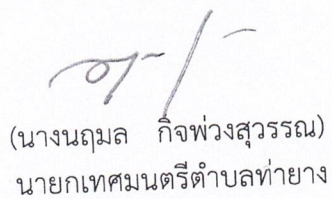 (นางนฤมล กิจพ่วงสุวรรณ)
นายกเทศมนตรีตำบลท่ายาง